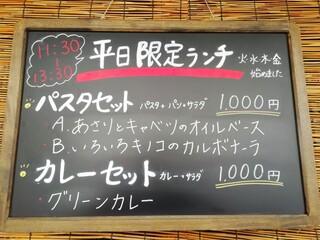 11:30
~
13:30
平日限定ランチ
火水木金
始めました
パスタセット パスタ+パン+サラダ 1,000円
A. あさりとキャベツのオイルベース
B. いろいろキノコのカルボナーラ
カレーセット カレー+サラダ 1,000円
・グリーンカレー